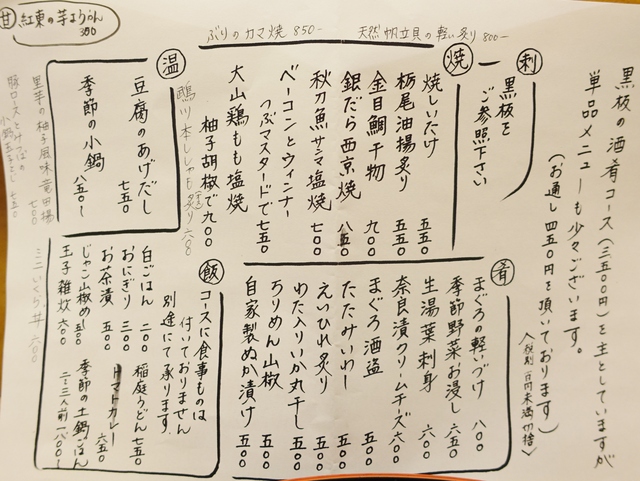 黒板の酒肴コース(三五〇〇円)を主としていますが
単品メニューも少々ございます。
(お通し四五〇円を頂いております)
(税別 一円未満切捨)
刺
黒板を
ご参照下さい
焼
焼しいたけ 五五〇
栃尾油揚炙り 五五〇
金目鯛干物 九〇〇
銀だら西京焼 八五〇
秋刀魚サンマ塩焼 七〇〇
ベーコンとウィンナー
つぶマスタードで 七五〇
大山鶏もも塩焼
柚子胡椒で 九〇〇
鵡川本ししゃも炙り 六〇〇
ぶりのカマ焼 850-
天然帆立貝の軽い炙り 800-
温
豆腐のあげだし 七五〇
季節の小鍋 八五〇〜
里芋の柚子風味竜田揚 七〇〇
小鍋玉子とじ 七五〇
甘
紅東の芋ようかん
350
肴
まぐろの軽いづけ 八〇〇
季節野菜お浸し 六五〇
生湯葉刺身 六〇〇
奈良漬クリームチーズ 六〇〇
まぐろ酒盗 五〇〇
たたみいわし 五〇〇
えいひれ炙り 五〇〇
わた入りいか丸干し 五〇〇
ちりめん山椒 五〇〇
自家製ぬか漬け 五〇〇
飯
コースに食事ものは
付いておりません
別途にて承ります
白ごはん 二〇〇
おにぎり 三〇〇
お茶漬 五〇〇
じゃこ山椒めし 五〇〇
玉子雑炊 六〇〇
ミニいくら丼 六〇〇
稲庭うどん 七五〇
トマトカレー 六五〇
季節の土鍋ごはん
二・三人前 一八〇〇〜